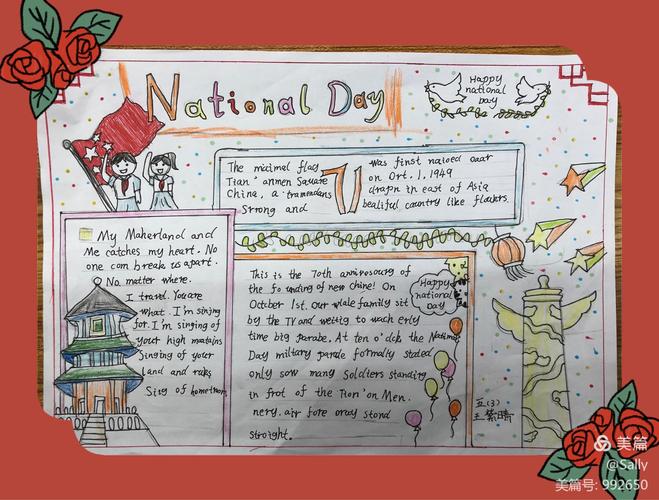 National Day
Happy
national
Day
The micimal flag
Tian'anmen Square
China, a tramendans
Strong and
was first naloed oaar
on Oct. 1, 1949
drapn in east of Asia
bealiful country like flowers.
My Maherland and
Me catches my heart. No
one com break us apart.
No matter where.
I travel. You are
what I'm sinjing
for. I'm singing of
your high mantains
Singing of your
land and raks
Sing of hometown
This is the 70th annivosoury of
the founding of new chine! On
October 1st. Our whale family sit
by the TV and weitig to wach erly
time big parabe. At ten o'clcks the National
Day military parade formalty stated
only sow many Soldiers standing
in frot of the Tian'on Men.
nery. air fore oray stond
stroight.
Happy
national
Day
五(3)
王紫晴
美篇
@Sally
美篇号: 992650